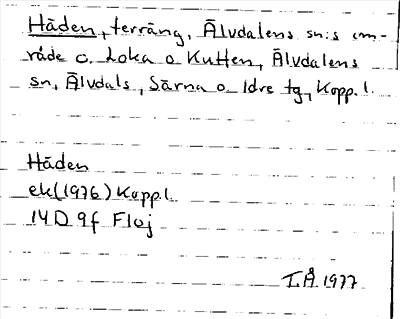 Håden, terräng, Älvdalens sn:s om-
råde c. Loka o Kutten, Älvdalens
sn, Älvdals, Särna o Idre tg, Kopp. l.
Håden
ek (1976) Kopp l.
14 D 9f Floj
T.Å. 1977